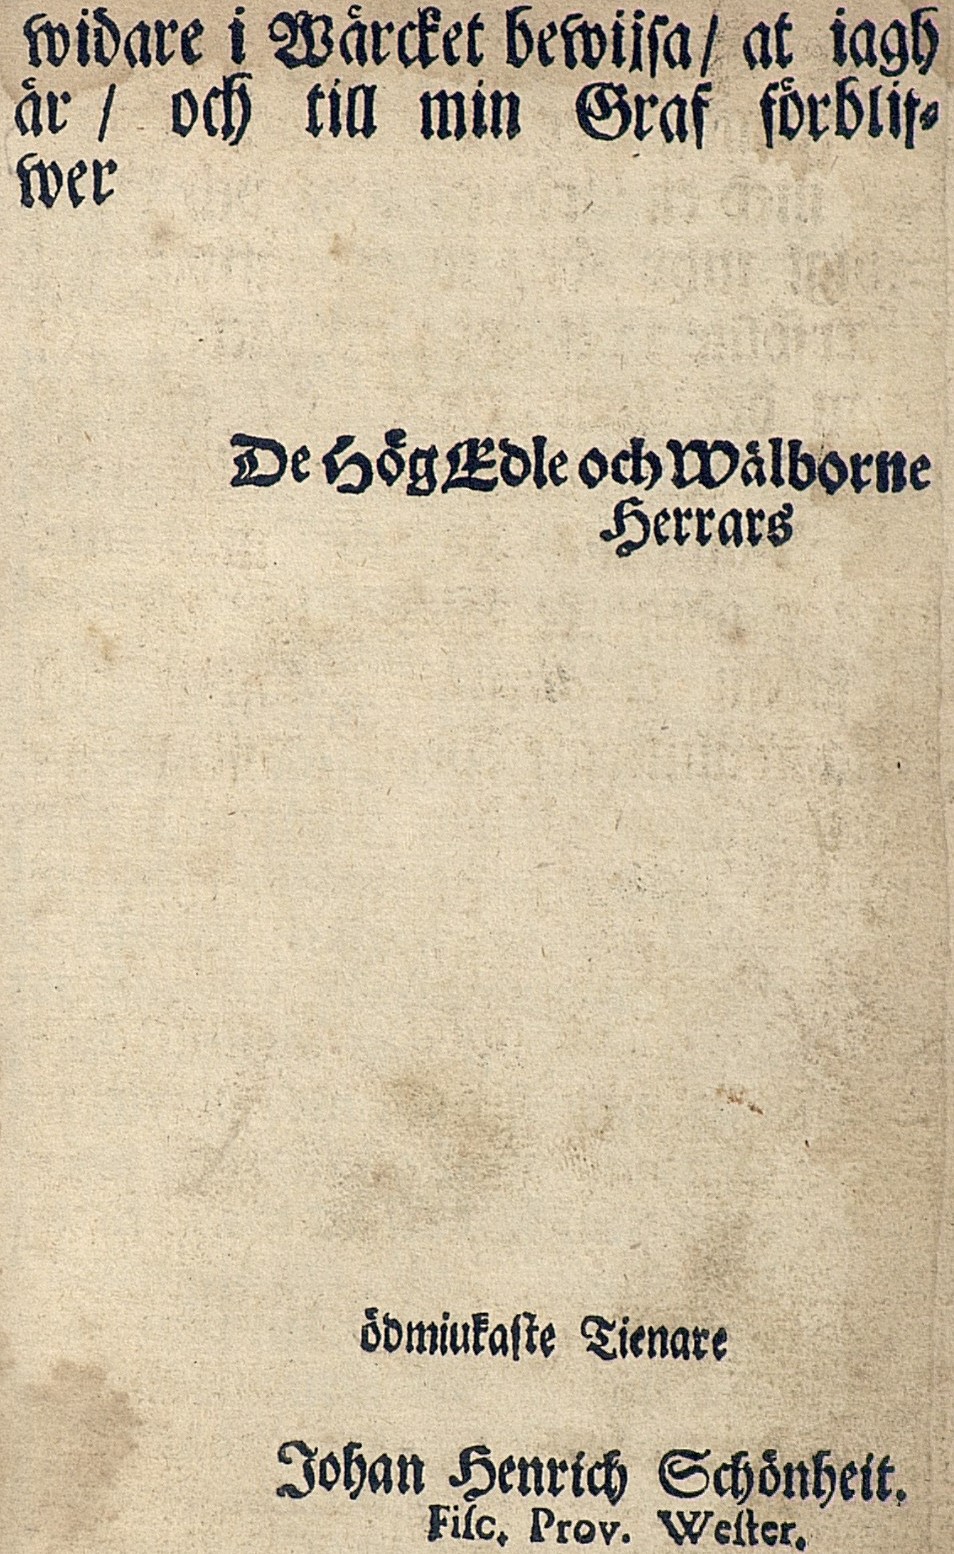 widare i Wärcket bewijsa / at iagh
är / och till min Graf förblif-
wer
De HögEdle och Wälborne
Herrars
ödmiukaste Tienare
Johan Henrich Schönheit.
Fisc. Prov. Wester.